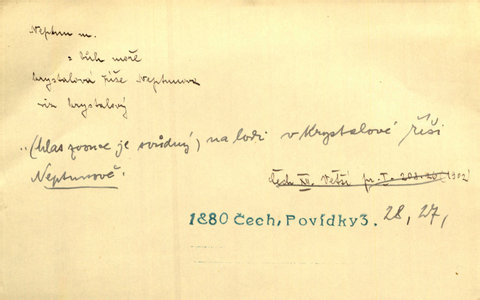 Neptun m.
= bůh moře
krystalová říše Neptunova
viz krystalový
„(hlas zvonce je svůdný) na lodi v Krystalové říši
Neptunově.
Čech XV. Větší pr. I. (1902)
1880 Čech, Povídky 3. 28, 27,